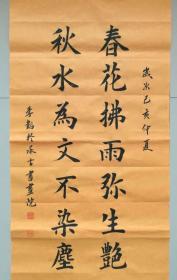 歲次己亥仲夏
春花拂雨弥生艷
秋水為文不染塵
李韜於永吉書畫院